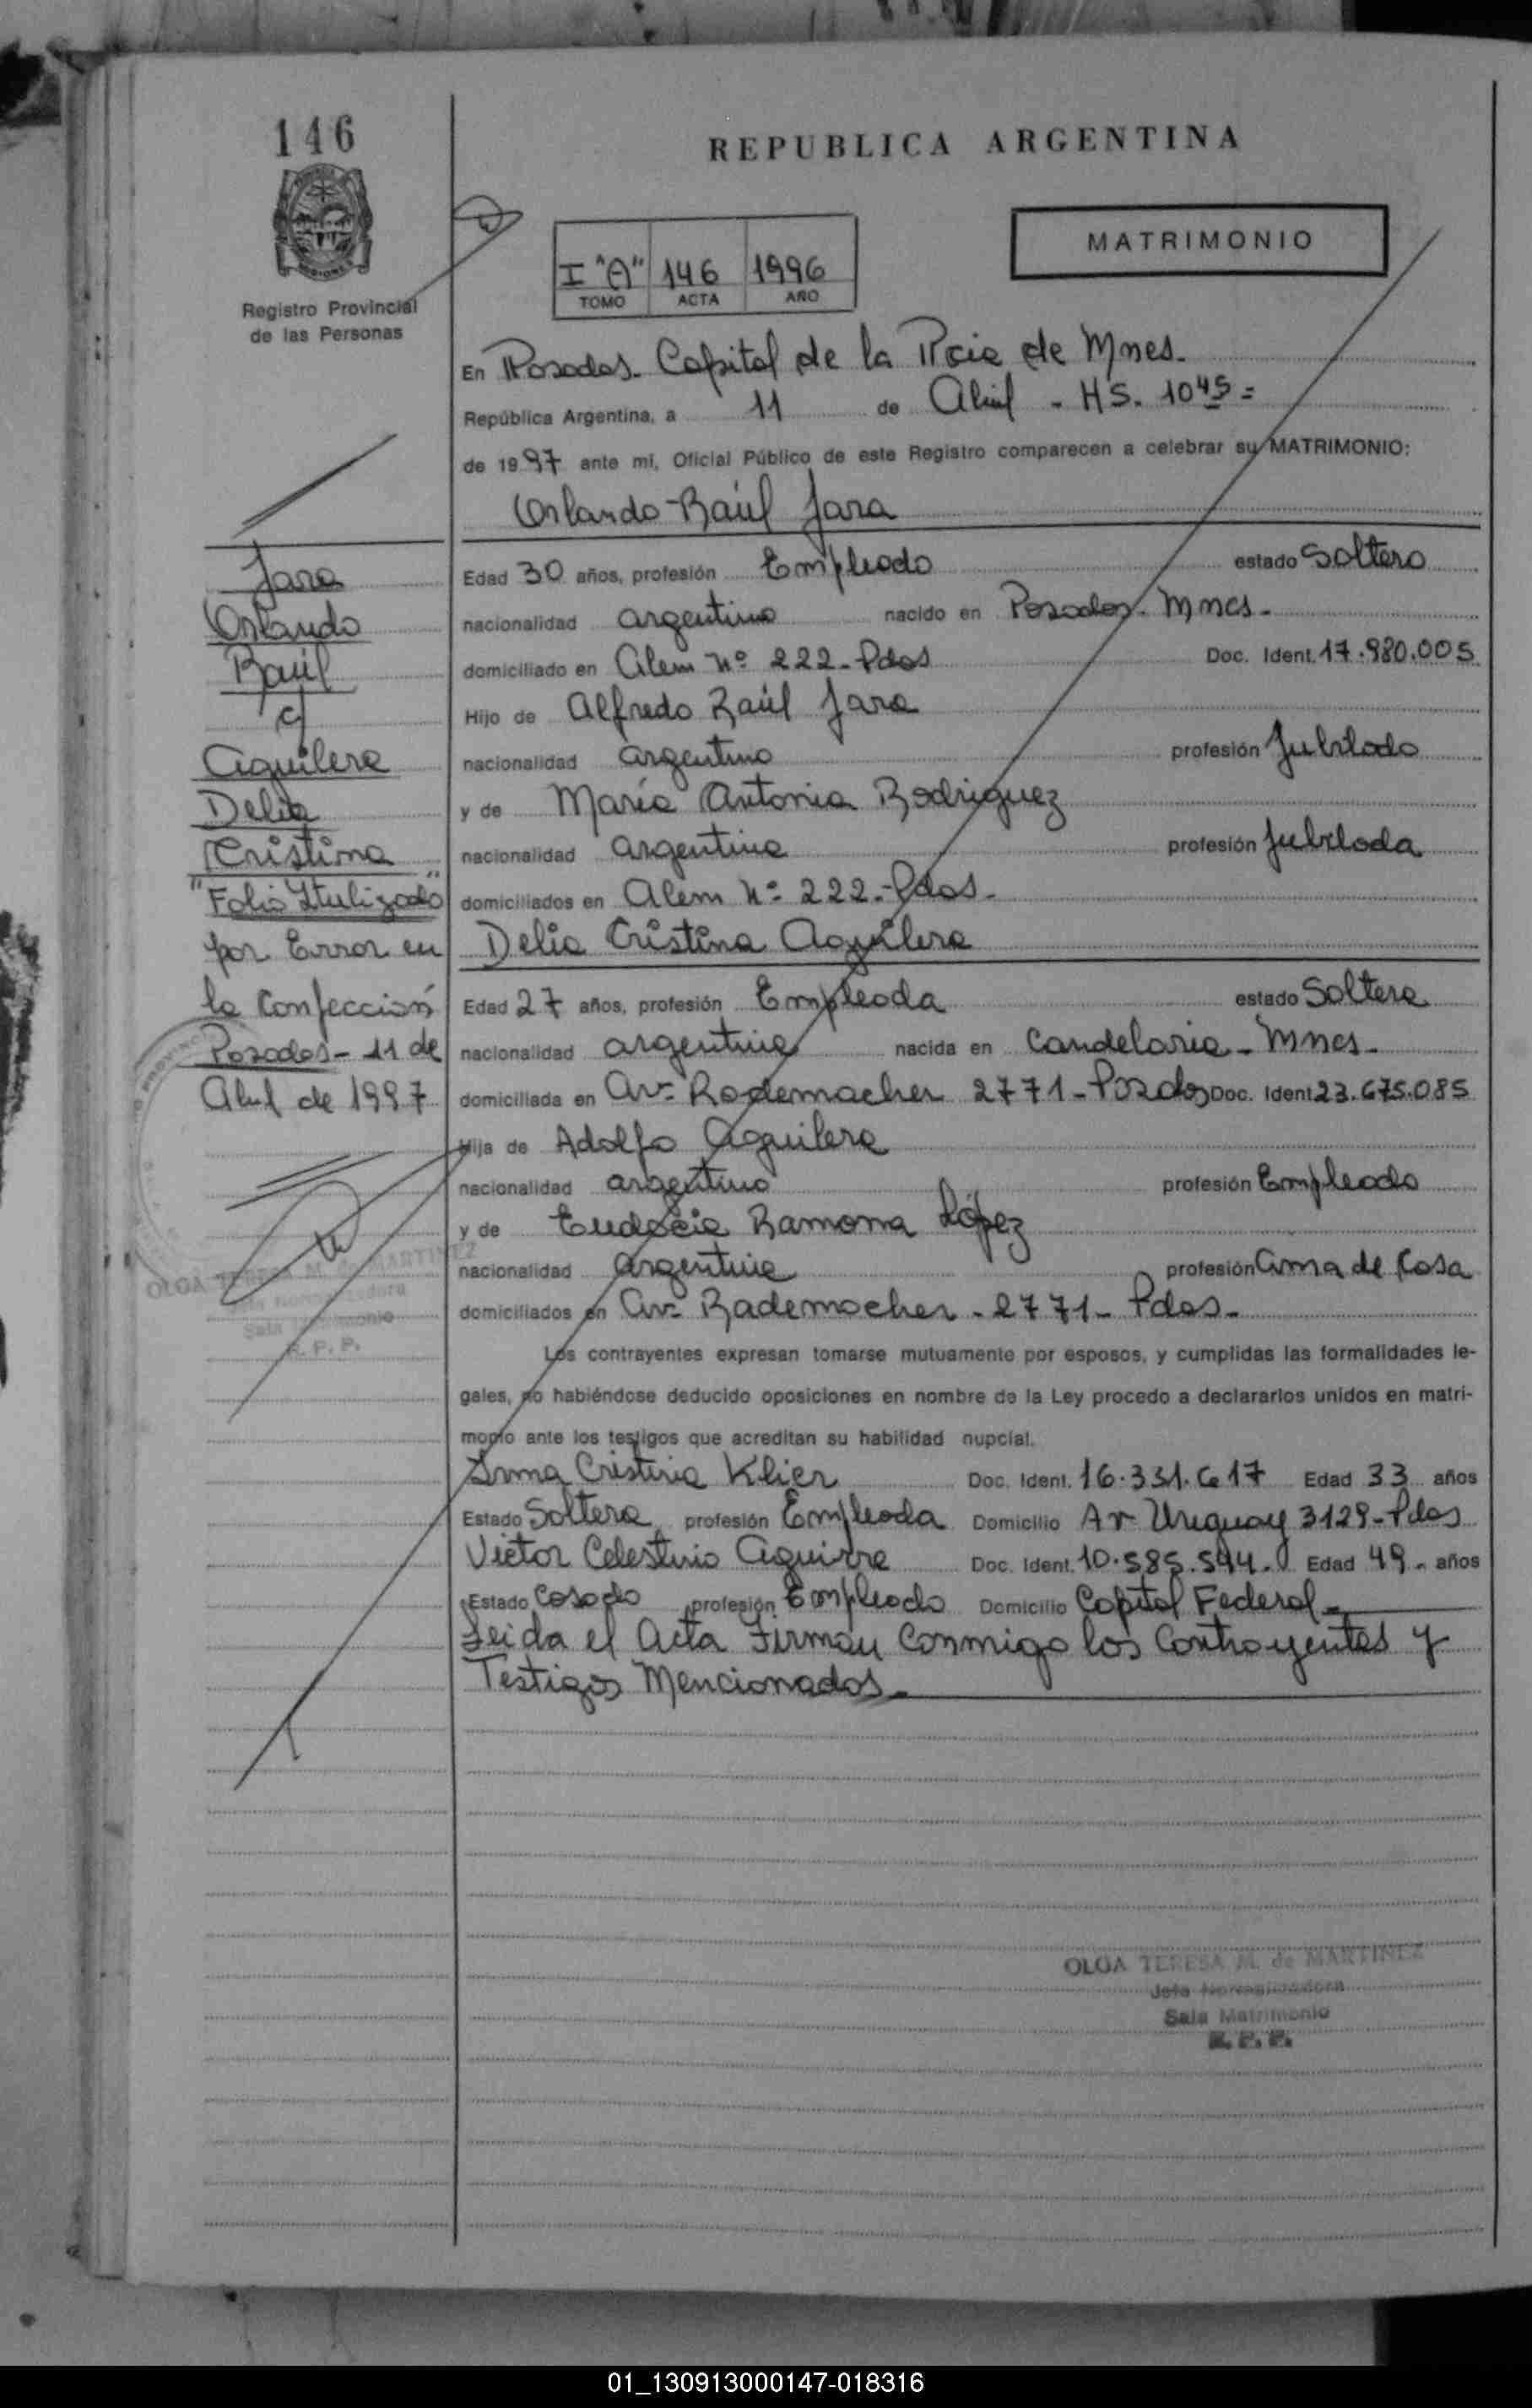 146
REPUBLICA ARGENTINA
MATRIMONIO
I "A" 146 1996
TOMO ACTA AÑO
Registro Provincial
de las Personas
En Posadas. Capital de la Pcia de Mnes.
República Argentina, a 11 de Abril - HS. 10 45 =
de 1997 ante mí, Oficial Público de este Registro comparecen a celebrar su MATRIMONIO:
Orlando Raúl Jara
Edad 30 años, profesión Empleado estado Soltero
nacionalidad argentino nacido en Posadas. Mnes.
domiciliado en Alem Nº 222- Pdas Doc. Ident. 17.980.005
Hijo de Alfredo Raúl Jara
nacionalidad argentino profesión Jubilado
y de María Antonia Rodriguez
nacionalidad argentina profesión Jubilada
domiciliados en Alem Nº 222.- Pdas.
Delia Cristina Aguilera
Edad 27 años, profesión Empleada estado Soltera
nacionalidad argentina nacida en Candelaria - Mnes.
domiciliada en Av. Rademacher 2771 - Posadas Doc. Ident 23.675.085
Hija de Adolfo Aguilera
nacionalidad argentino profesión Empleado
y de Eudocia Ramona López
nacionalidad argentina profesión Ama de Casa
domiciliados en Av. Rademacher - 2771 - Pdas.
Los contrayentes expresan tomarse mutuamente por esposos, y cumplidas las formalidades le-
gales, no habiéndose deducido oposiciones en nombre de la Ley procedo a declararlos unidos en matri-
monio ante los testigos que acreditan su habilidad nupcial.
Irma Cristina Klier Doc. Ident. 16.331.617 Edad 33 años
Estado Soltera profesión Empleada Domicilio Av Uruguay 3129 - Pdas
Victor Celestino Aguirre Doc. Ident. 10.585.544. Edad 49 años
Estado Casado profesión Empleado Domicilio Capital Federal
Leida el Acta Firman Conmigo los Contrayentes y
Testigos Mencionados
Jara
Orlando
Raúl
c/
Aguilera
Delia
Cristina
"Folio Inutilizado"
por Error en
la Confección
Posadas - 11 de
Abril de 1997
OLGA TERESA M. de MARTINEZ
Jefa Normalizadora
Sala Matrimonio
R. P. P.
OLGA TERESA M. de MARTINEZ
Jefa Normalizadora
Sala Matrimonio
R. P. P.
01_130913000147-018316